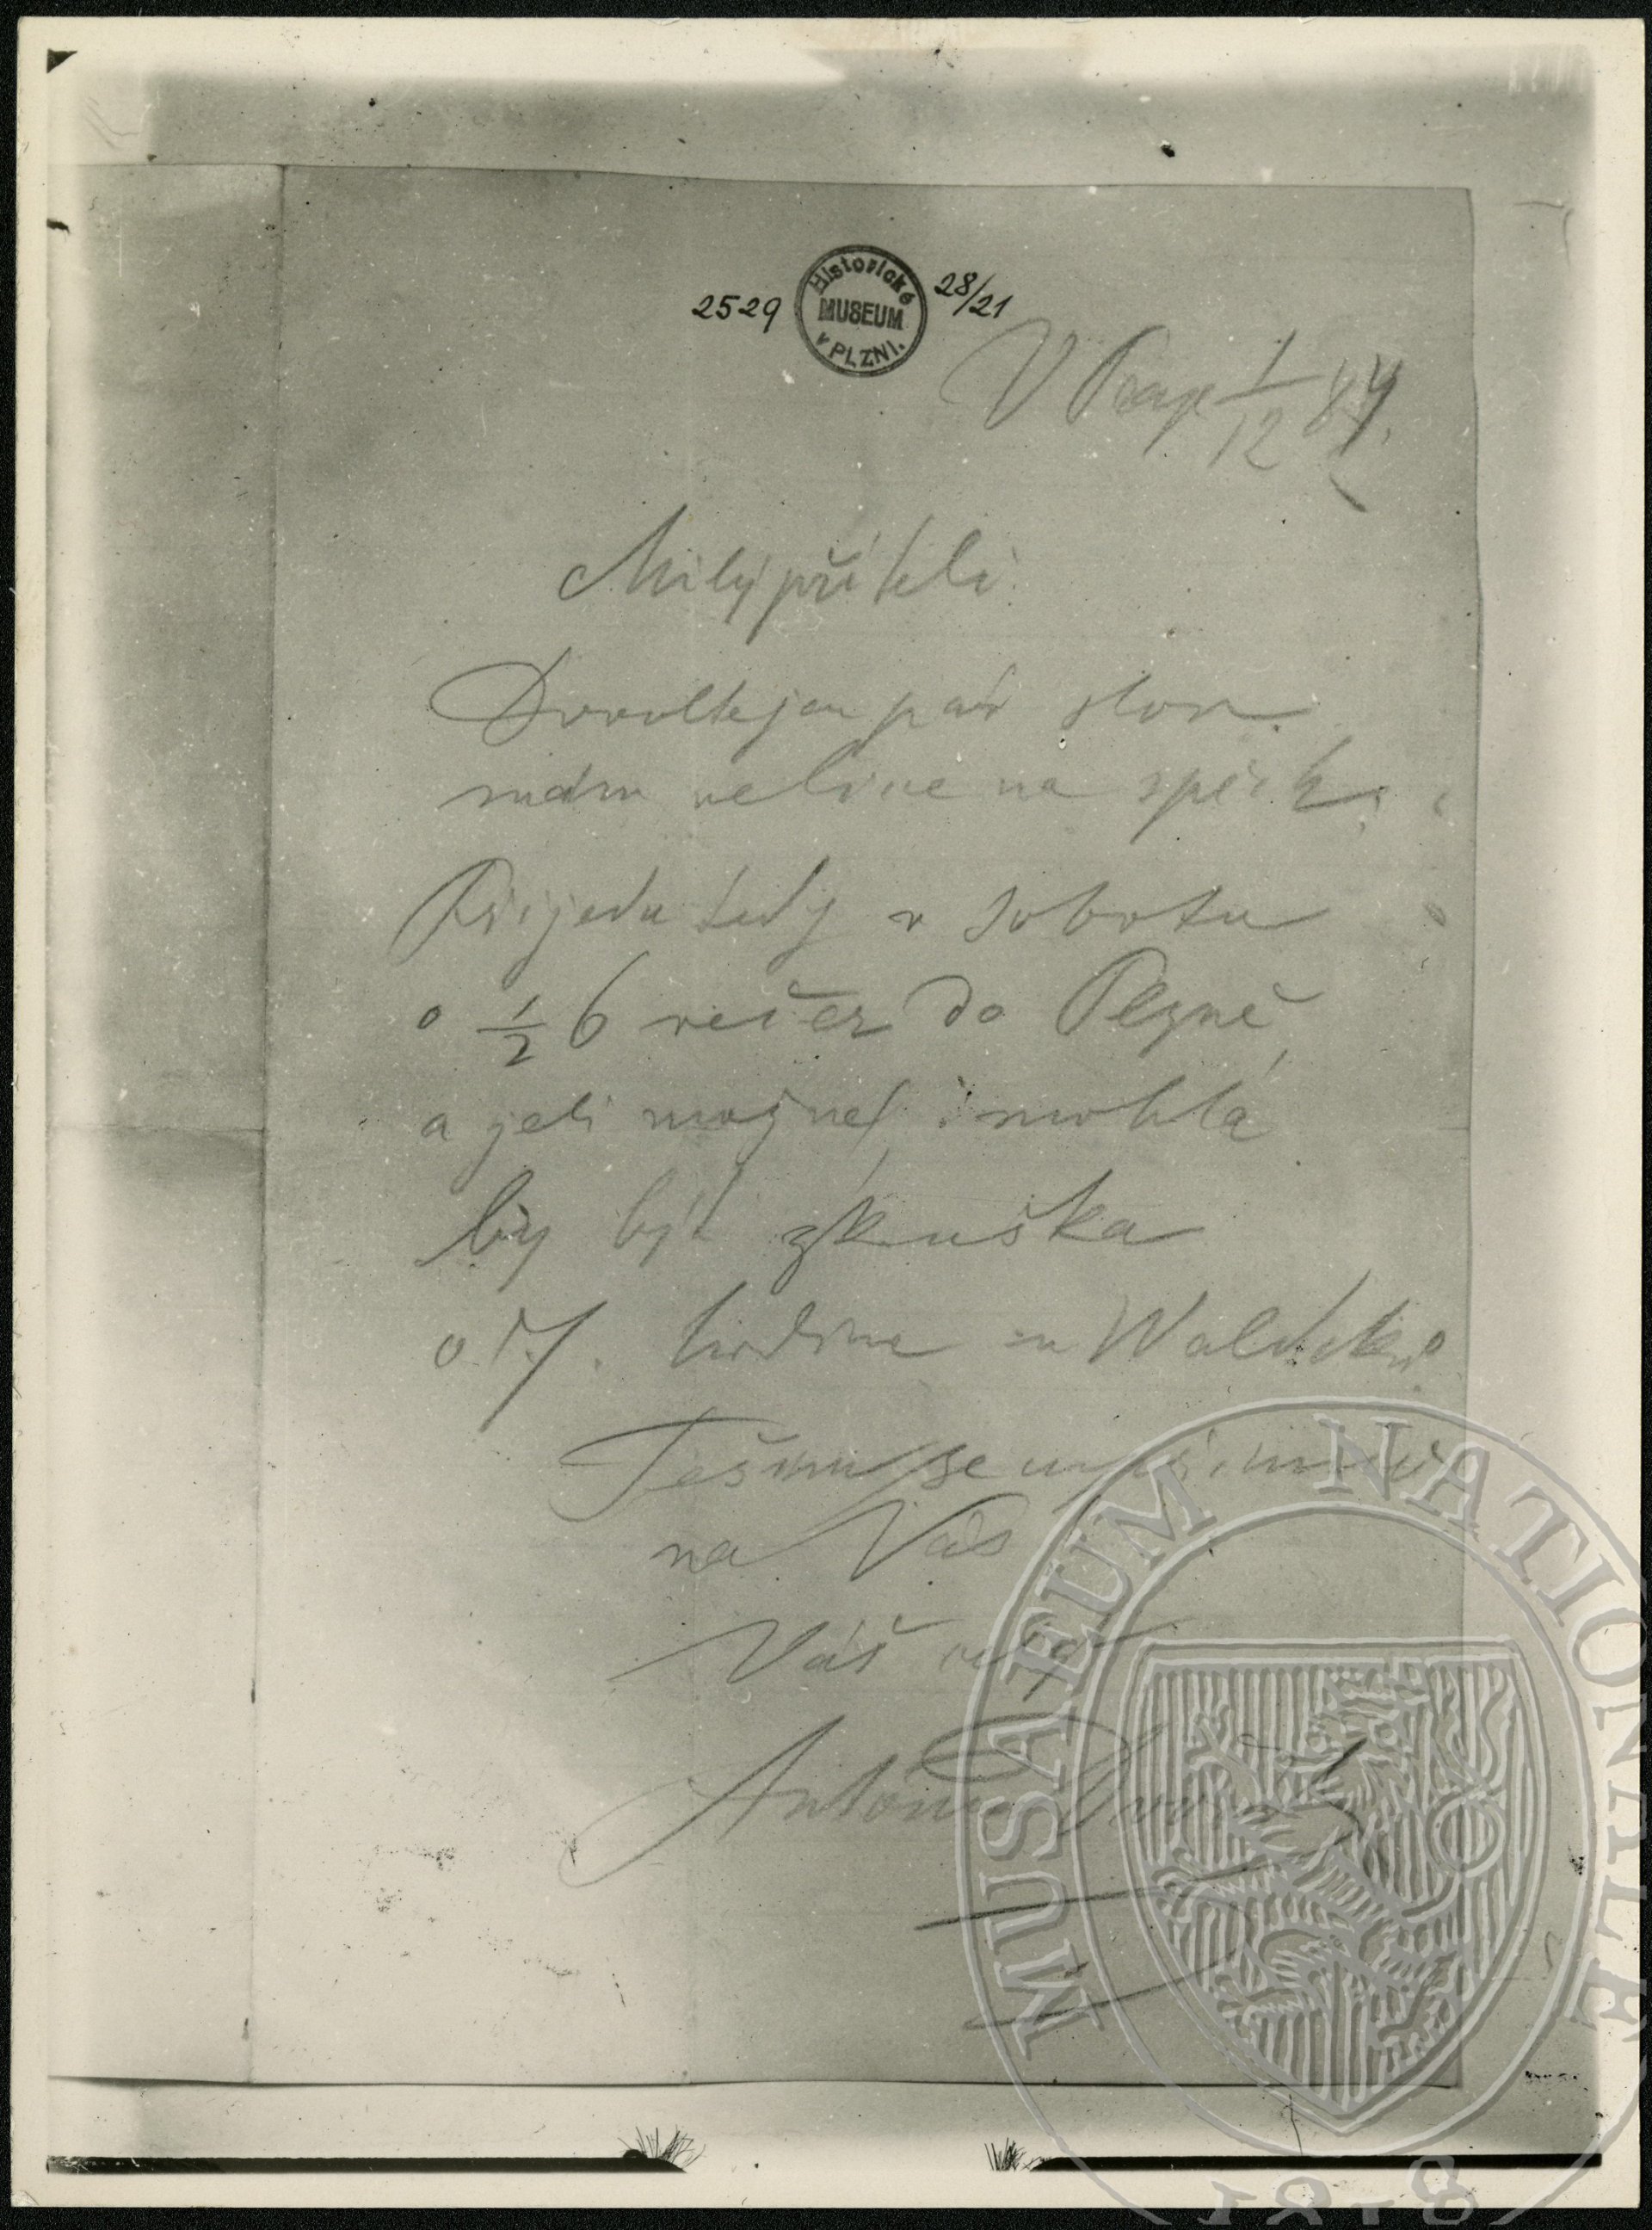 2529 Historické MUSEUM v PLZNI. 28/21
V Praze 1/12 84.
Milý příteli
Dovolte jen pár slov
mám velice na spěch.
Přijedu tedy v sobotu
o 1/2 6 večer do Plzně
a jeli možné, mohla
by být zkouška
o 7. hodině u Waldeků
Těším se
na Vás
Váš
Antonín Dvořák
MUSAEUM NATIONALE
1818